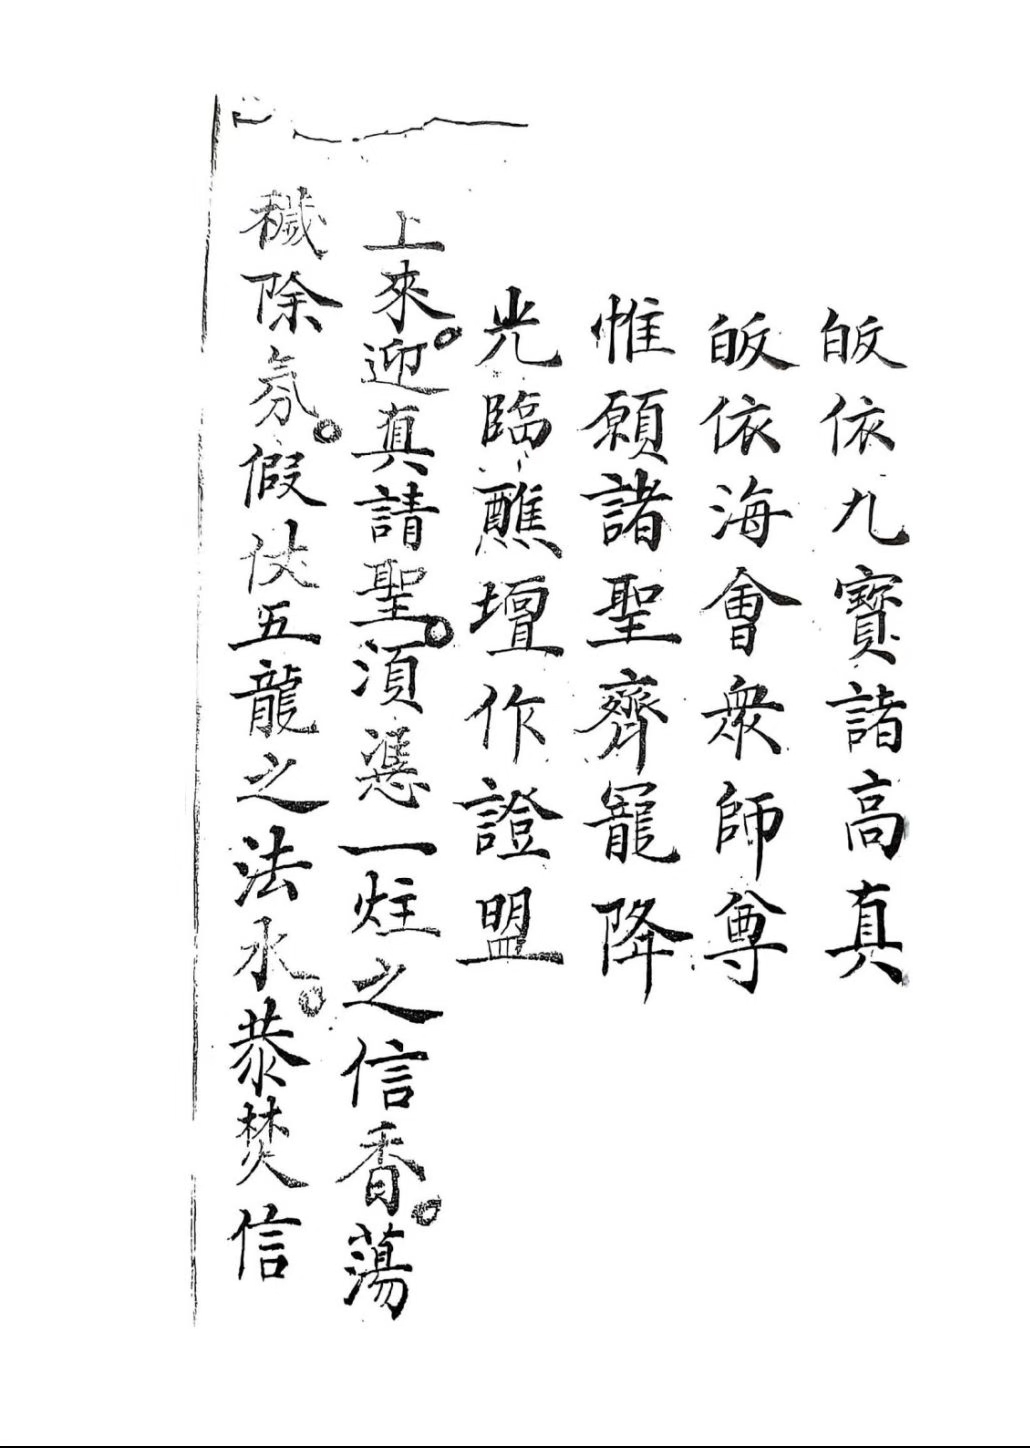 皈依九寳諸高真
皈依海會衆師尊
惟願諸聖齊寵降
光臨醮壇作證盟
上來。迎真請聖。須憑一炷之信香。蕩
穢除氛。假仗五龍之法水。恭焚信